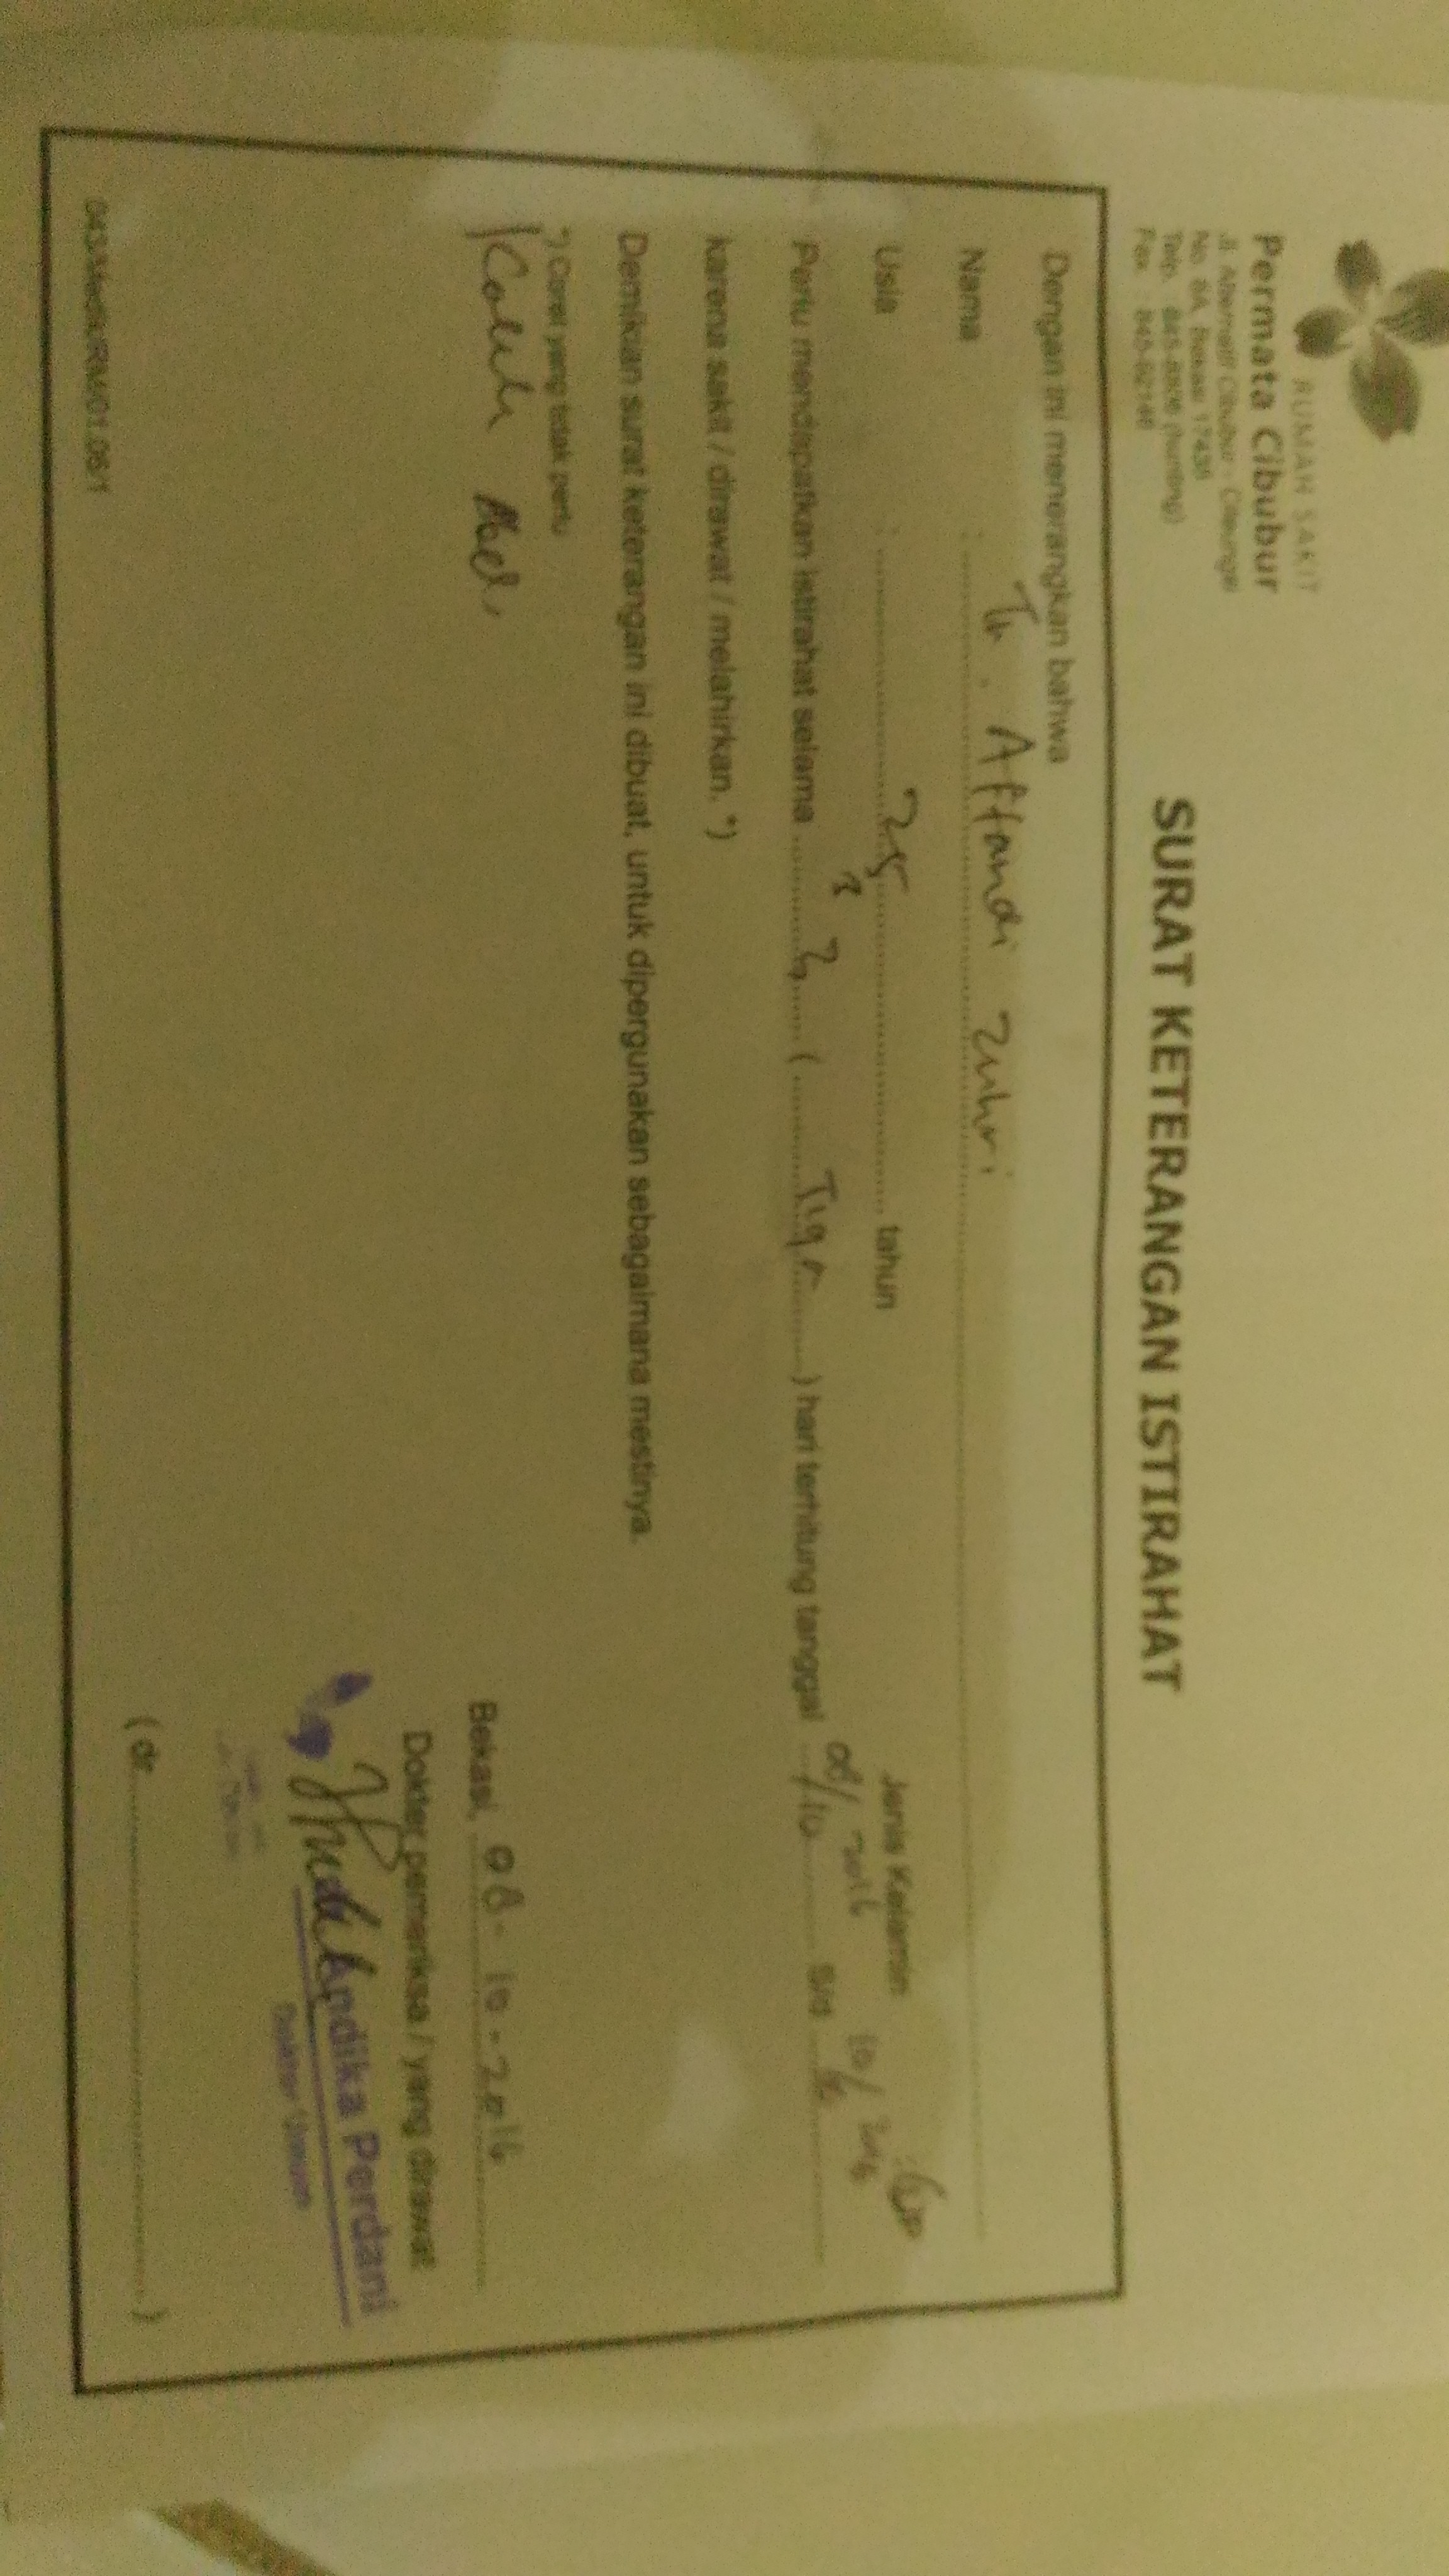 RUMAH SAKIT
Permata Cibubur
Jl. Alternatif Cibubur - Cileungsi
No. 6A, Bekasi 17435
Telp. : 845-8806 (hunting)
Fax. : 845-92146
SURAT KETERANGAN ISTIRAHAT
Dengan ini menerangkan bahwa
Nama : Tn. Affandi Zuhri
Usia : 25 tahun Jenis Kelamin :
Perlu mendapatkan istirahat selama 3 ( Tiga ) hari terhitung tanggal 08/10 2016 s/d 10/10 2016
karena sakit / dirawat / melahirkan. *)
Demikian surat keterangan ini dibuat, untuk dipergunakan sebagaimana mestinya.
*) Coret yang tidak perlu
Bekasi, 08-10-2016
Dokter pemeriksa / yang dirawat
Andika Perdani
Dokter Umum
( dr. )